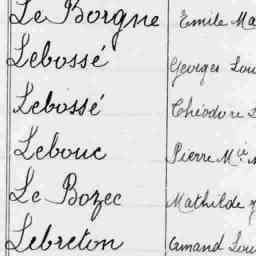 Le Borgne Emile Ma
Lebossé Georges Lou
Lebossé Théodore
Lebouc Pierre Mie
Le Bozec Mathilde
Lebreton Amand Lou